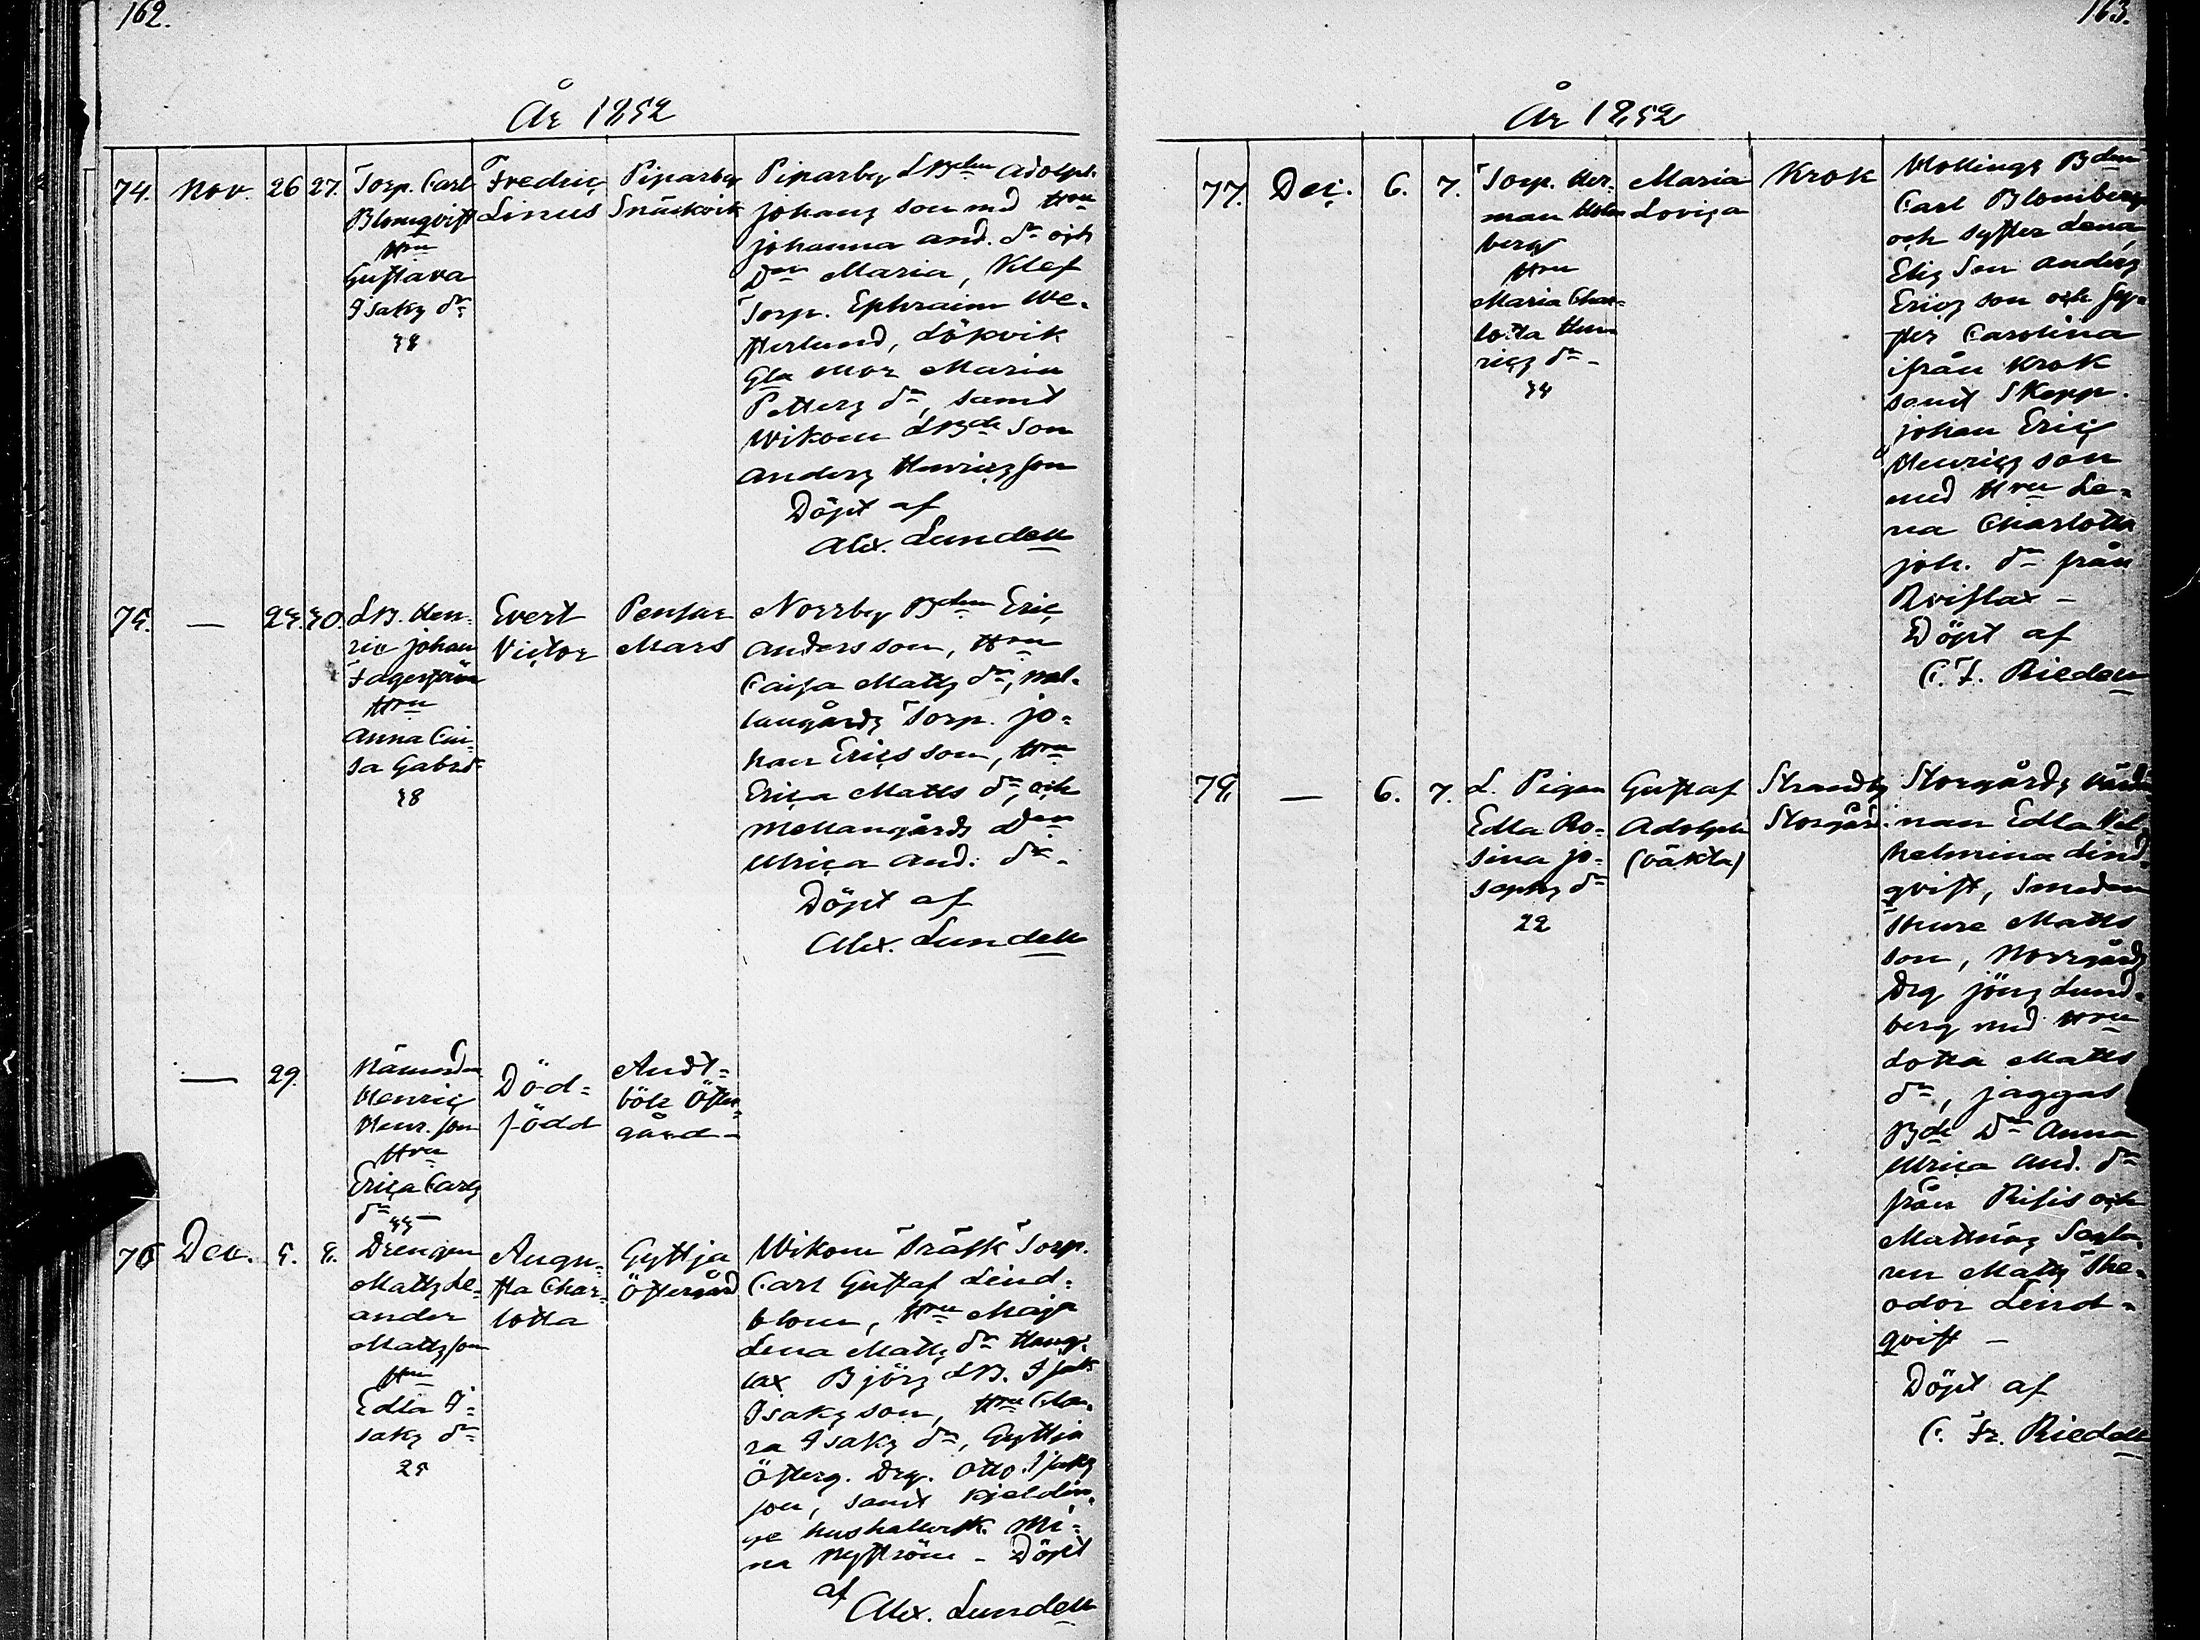 162.
År 1852
74. Nov. 26 27.
Torp. Carl
Blomqvist
Hru
Gustava
Isaks dr
38
Fredric
Linus
Piparby
Snäckvik
Piparby LBden Adolph
Johans son med Hru
Johanna And. dr och
Dn Maria, Klef
Torp. Ephraim We-
sterlund, Lökvik
Gla Mor Maria
Petters dr, samt
Wikom LBde Son
Anders Henricsson
Döpt af
Alex. Lundell
75. — 25. 30.
LB. Hen-
ric Johan
Hru
Anna Cai-
sa Gabr. dr
38
Evert
Victor
Pensar
Mars
Norrby Bden Eric
Andersson, Hru
Caisa Matts dr, Mel-
langårds Torp. Jo-
han Ericsson, Hru
Erica Matts dr, och
Mellangårds Dn
Ulrica And. dr.
Döpt af
Alex. Lundell
— 29.
Nämnd
Henric
Henr. son
Hru
Erica Carls
dr 35 —
Död-
född
Andt-
böle Öster-
gård —
76 Dec. 5. 8.
Drengen
Matts Le-
ander
Mattsson
Hru
Edla I-
saks dr
25
Augu-
sta Char-
lotta
Gyttja
Östergård
Wikom Träsk Torp.
Carl Gustaf Lind-
blom, Hru Maja
Lena Matts dr
lax Björs LB. Isak
Isaksson, Hru Cla-
ra Isaks dr, Gyttja
Österg. Drg. Otto Isaks
son, samt Kjeldin-
ge hushållersk. Mi-
na Nyström — Döpt
af
Alex. Lundell
163.
År 1852
77. Dec. 6. 7.
Torp. Her-
man Holm
berg
Hru
Maria Char-
lotta Hen
rics dr —
34
Maria
Lovisa
Krok
Mollings Bden
Carl Blomberg
och syster Lena,
Elis Son Anders
Erics son och sy-
ster Carolina
ifrån Krok
samt Skepp.
Johan Eric
Henrics son
med Hru Le-
na Charlotta
Joh. dr från
Döpt af
C. F. Riedell
78. — 6. 7.
L. Pigan
Edla Ro-
sina Jo-
sephs dr
22
Gustaf
Adolph
(oäkta)
Strandby
Storgård.
Storgårds Värdin-
nan Edla Vil
helmina Lind-
qvist, Smeden
Thure Matts
son, Norrgårds
Drg Jöns Lund-
berg med Hru
Lotta Matts
dr, Jaggas
Bde Dn Anna
Ulrica And. dr
från Risis och
Mattnäs
Matts The-
odor Lind-
qvist —
Döpt af
C. Fr. Riedell